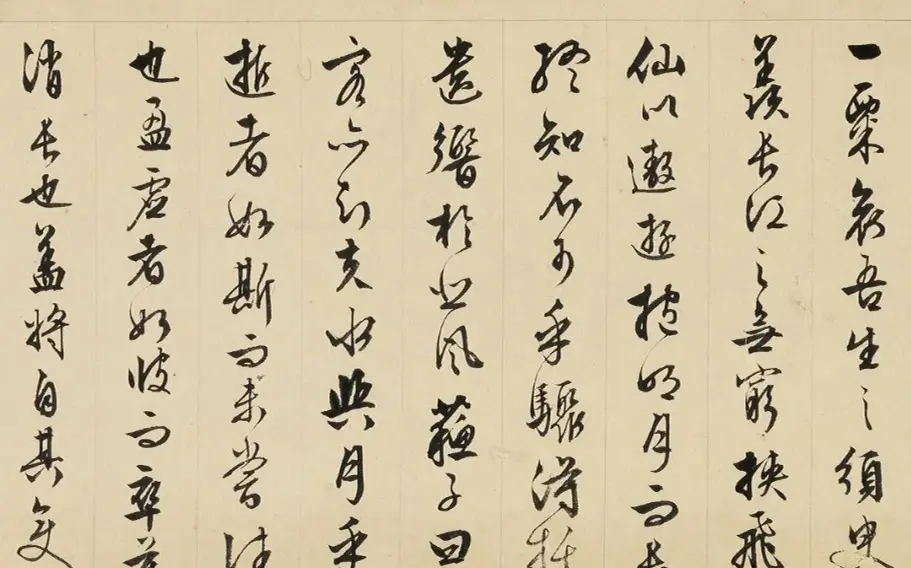 一粟哀吾生之須臾
羨長江之無窮挾飛
仙以遨遊抱明月而長
終知不可乎驟得托
遺響於悲風蘇子曰
客亦知夫水與月乎
逝者如斯而未嘗往
也盈虛者如彼而卒莫
消長也蓋將自其變